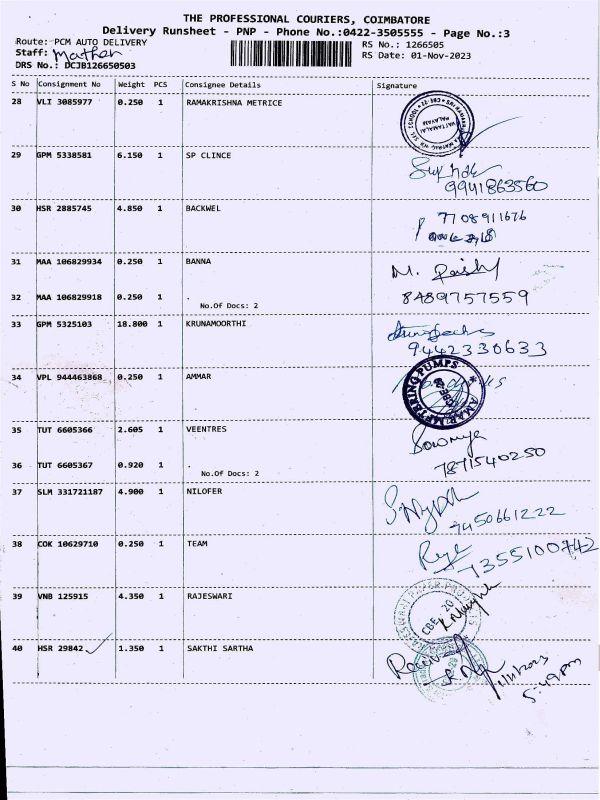 THE PROFESSIONAL COURIERS, COIMBATORE
Delivery Runsheet - PNP - Phone No.:0422-3505555 - Page No.:3
Route: PCM AUTO DELIVERY
RS No.: 1266505
Staff: Mathan
RS Date: 01-Nov-2023
DRS No.: DCJB126650503
S No Consignment No Weight PCS Consignee Details Signature
28 VLI 3085977 0.250 1 RAMAKRISHNA METRICE
29 GPM 5338581 6.150 1 SP CLINCE
9941863560
30 HSR 2885745 4.850 1 BACKWEL 7708911676
31 MAA 106829934 0.250 1 BANNA M.
32 MAA 106829918 0.250 1 . 8489757559
No.Of Docs: 2
33 GPM 5325103 18.800 1 KRUNAMOORTHI
9442330633
34 VPL 944463868 0.250 1 AMMAR
35 TUT 6605366 2.605 1 VEENTRES Sowmya
36 TUT 6605367 0.920 1 . 7871540250
No.Of Docs: 2
37 SLM 331721187 4.900 1 NILOFER
9450661222
38 COK 10629710 0.250 1 TEAM
7355100742
39 VNB 125915 4.350 1 RAJESWARI
CBE 20
40 HSR 29842 1.350 1 SAKTHI SARTHA Received
5:49 pm